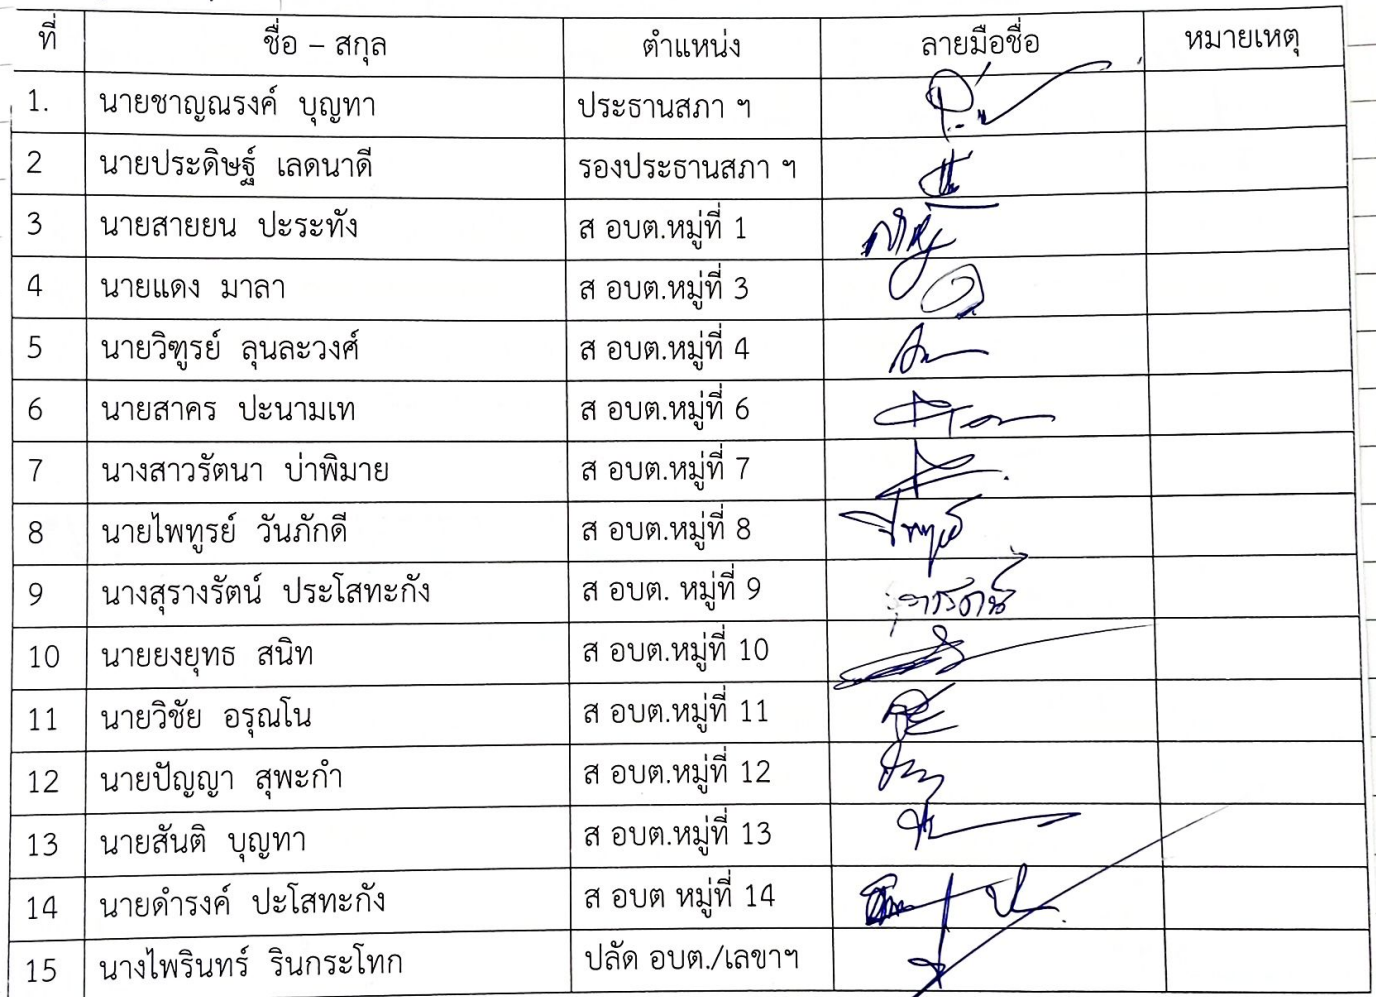 ที่ ชื่อ – สกุล ตำแหน่ง ลายมือชื่อ หมายเหตุ
1. นายชาญณรงค์ บุญทา ประธานสภา ฯ
2 นายประดิษฐ์ เลดนาดี รองประธานสภา ฯ
3 นายสายยน ปะระทัง ส อบต.หมู่ที่ 1
4 นายแดง มาลา ส อบต.หมู่ที่ 3
5 นายวิฑูรย์ ลุนละวงศ์ ส อบต.หมู่ที่ 4
6 นายสาคร ปะนามเท ส อบต.หมู่ที่ 6
7 นางสาวรัตนา บ่าพิมาย ส อบต.หมู่ที่ 7
8 นายไพทูรย์ วันภักดี ส อบต.หมู่ที่ 8
9 นางสุรางรัตน์ ประโสทะกัง ส อบต. หมู่ที่ 9
10 นายยงยุทธ สนิท ส อบต.หมู่ที่ 10
11 นายวิชัย อรุณโน ส อบต.หมู่ที่ 11
12 นายปัญญา สุพะกำ ส อบต.หมู่ที่ 12
13 นายสันติ บุญทา ส อบต.หมู่ที่ 13
14 นายดำรงค์ ปะโสทะกัง ส อบต หมู่ที่ 14
15 นางไพรินทร์ รินกระโทก ปลัด อบต./เลขาฯ